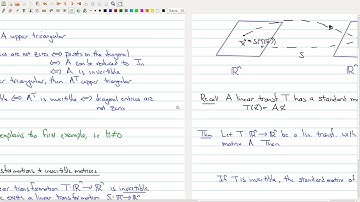 A upper triangular
are not zero ⟺ pivots on the diagonal
⟺ A can be reduced to Iₙ
⟺ A is invertible
triangular, then Aᵀ upper triangular
⟺ Aᵀ is invertible ⟺ diagonal entries are
not zero
explains the first example, i.e. h≠0.
transformations + invertible matrices
linear transformation T: ℝⁿ→ℝⁿ is invertible
exists a linear transformation S: ℝⁿ→ℝⁿ
x = S(T(x))
S
ℝⁿ
ℝⁿ
Recall A linear transf. T has a standard
T(x) = Ax
Thm Let T: ℝⁿ→ℝⁿ be a lin. transf. with
matrix A. Then
If T is invertible, the standard matrix of